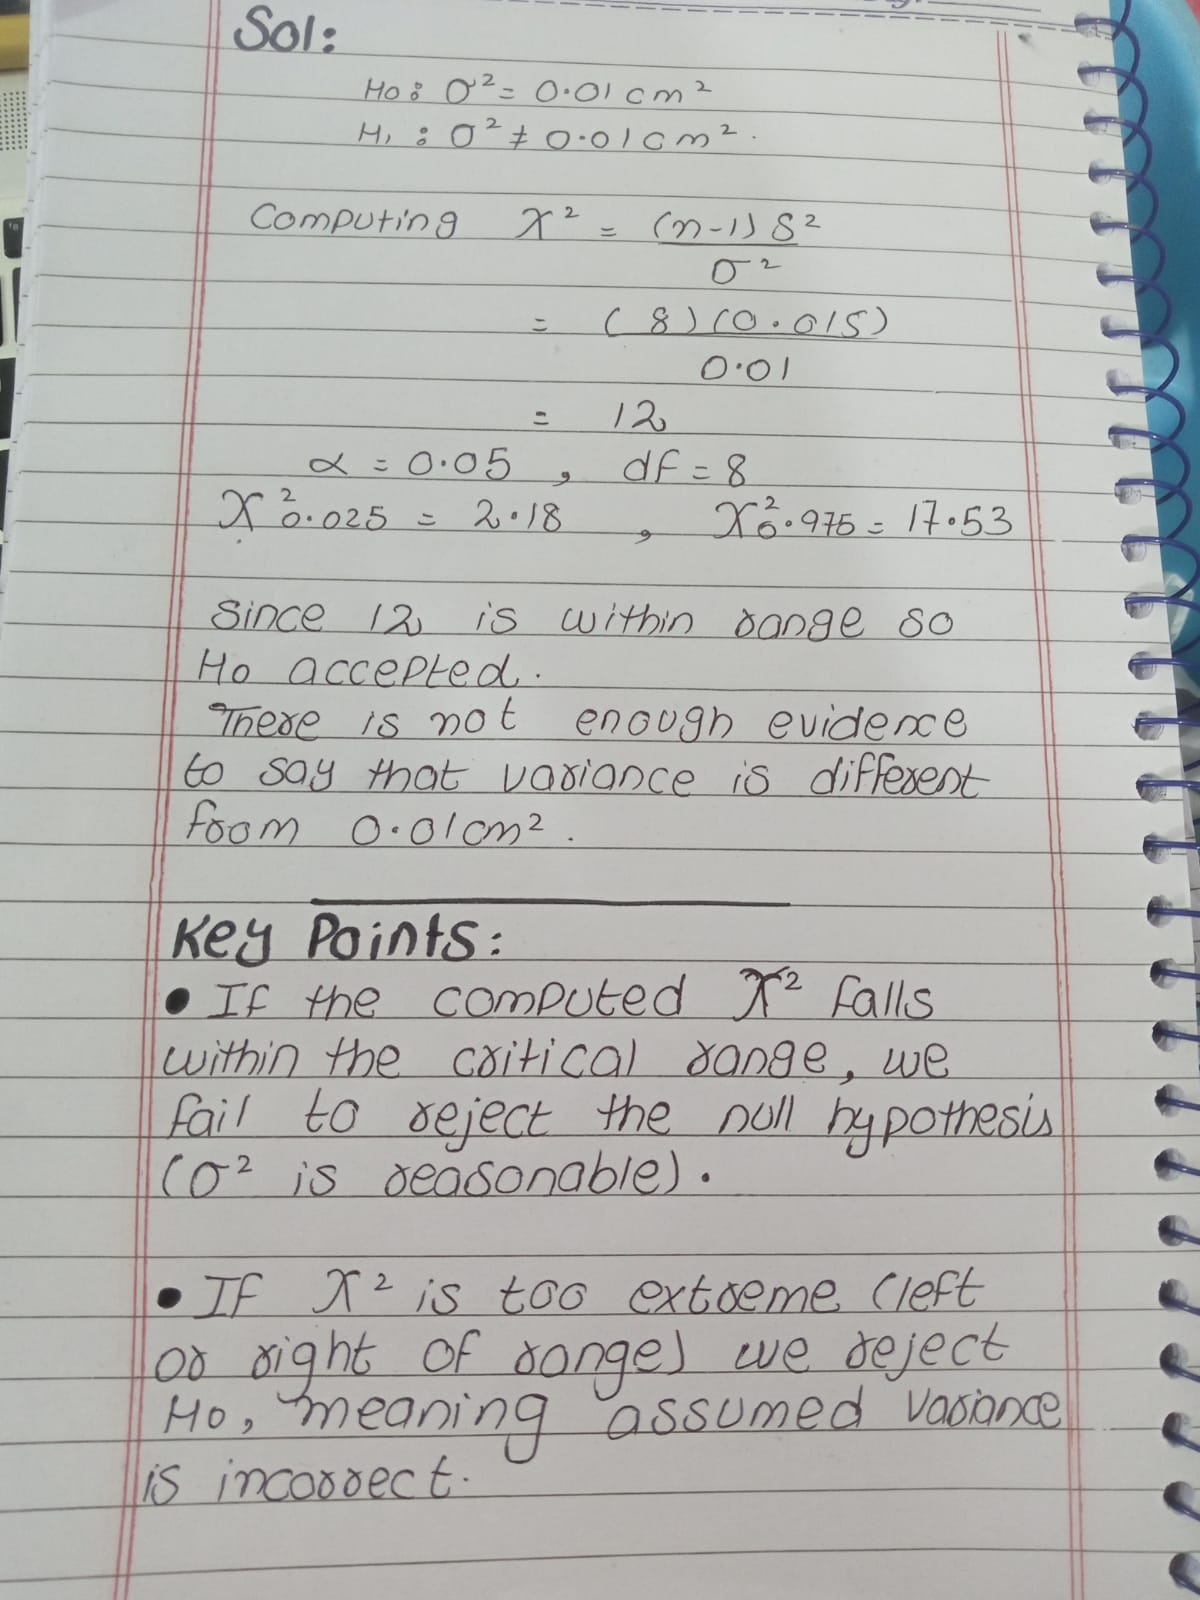 Sol:
H0: σ² = 0.01 cm²
H1: σ² ≠ 0.01 cm².
Computing χ² = (n-1) S²
σ²
= (8)(0.015)
0.01
= 12
α = 0.05 , df = 8
χ²0.025 = 2.18 , χ²0.975 = 17.53
Since 12 is within range so
H0 accepted.
There is not enough evidence
to say that variance is different
from 0.01cm².
Key Points:
• If the computed χ² falls
within the critical range, we
fail to reject the null hypothesis
(σ² is reasonable).
• If χ² is too extreme (left
or right of range) we reject
H0, meaning assumed variance
is incorrect.